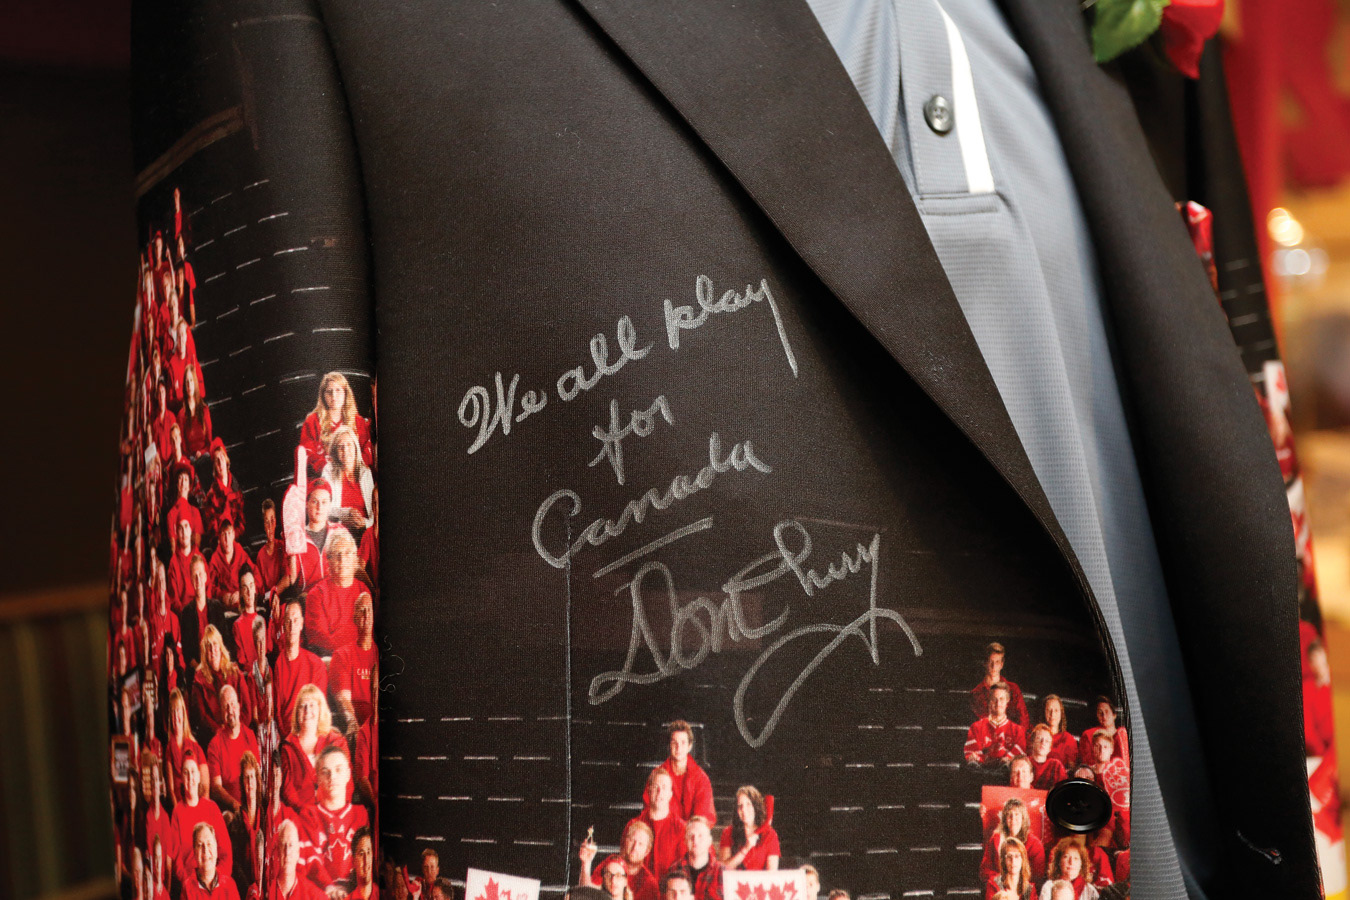 We all play
for
Canada
Don Cherry